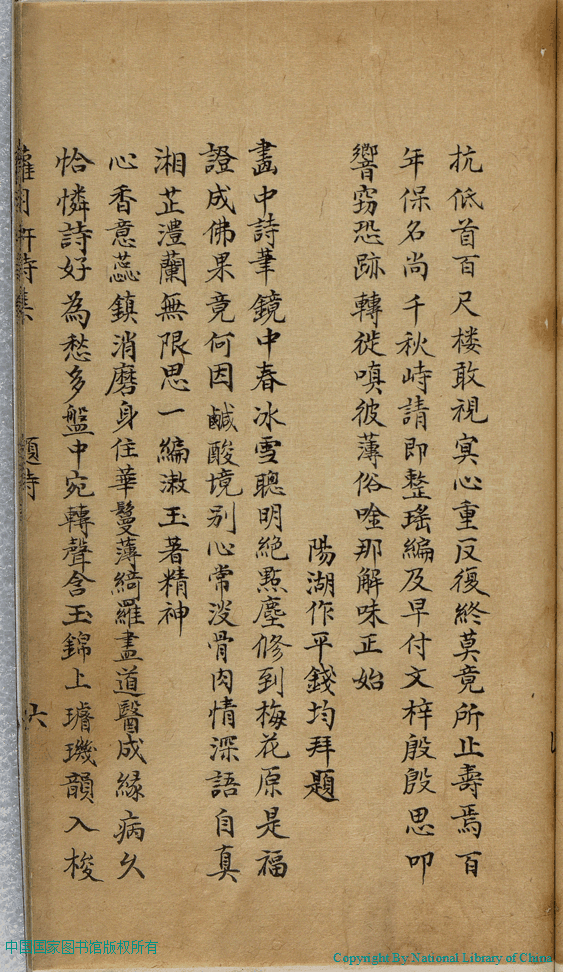 抗低首百尺楼敢視寞心重反復終莫竟所止壽焉百
年保名尚千秋峙請即整瑤編及早付文梓殷殷思叩
響竊恐跡轉徙嗔彼薄俗唫那解味正始
陽湖作平錢均拜題
畵中詩筆鏡中春冰雪聰明絶㸃塵修到梅花原是福
證成佛果竟何因鹹酸境别心常淡骨肉情深語自真
湘芷澧蘭無限思一編漱玉著精神
心香意蕊鎮消磨身住華鬘薄綺羅盡道醫成緣病久
恰憐詩好為愁多盤中宛轉聲含玉錦上璿璣韻入梭
軒詩集 題詩 六
中国国家图书馆版权所有
Copyright By National Library of China